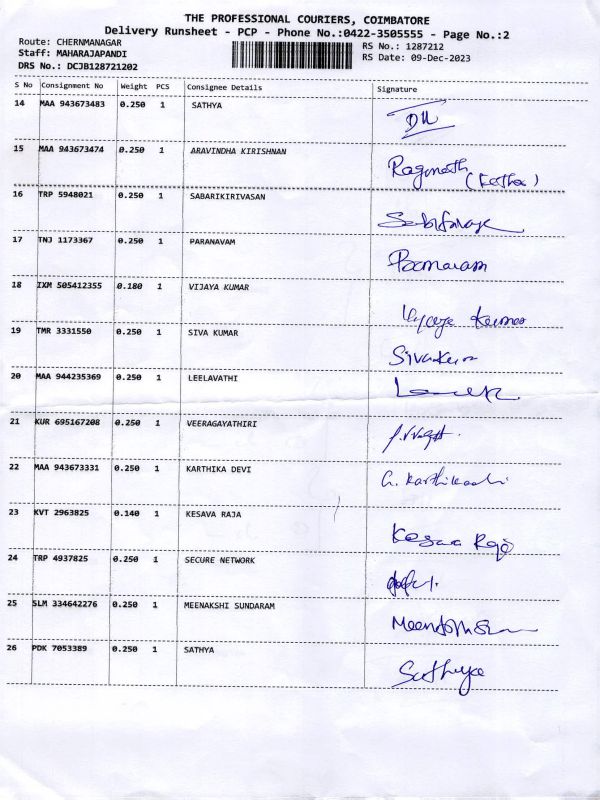 THE PROFESSIONAL COURIERS, COIMBATORE
Delivery Runsheet - PCP - Phone No.:0422-3505555 - Page No.:2
Route: CHERNMANAGAR
Staff: MAHARAJAPANDI
DRS No.: DCJB128721202
RS No.: 1287212
RS Date: 09-Dec-2023
S No Consignment No Weight PCS Consignee Details Signature
14 MAA 943673483 0.250 1 SATHYA
15 MAA 943673474 0.250 1 ARAVINDHA KIRISHNAN
Ragunath
16 TRP 5948021 0.250 1 SABARIKIRIVASAN
17 TNJ 1173367 0.250 1 PARANAVAM
18 IXM 505412355 0.180 1 VIJAYA KUMAR
Vijaya Kumar
19 TMR 3331550 0.250 1 SIVA KUMAR
Sivakumar
20 MAA 944235369 0.250 1 LEELAVATHI
21 KUR 695167208 0.250 1 VEERAGAYATHIRI
22 MAA 943673331 0.250 1 KARTHIKA DEVI
23 KVT 2963825 0.140 1 KESAVA RAJA
Kesava Raja
24 TRP 4937825 0.250 1 SECURE NETWORK
25 SLM 334642276 0.250 1 MEENAKSHI SUNDARAM
26 PDK 7053389 0.250 1 SATHYA
Sathya